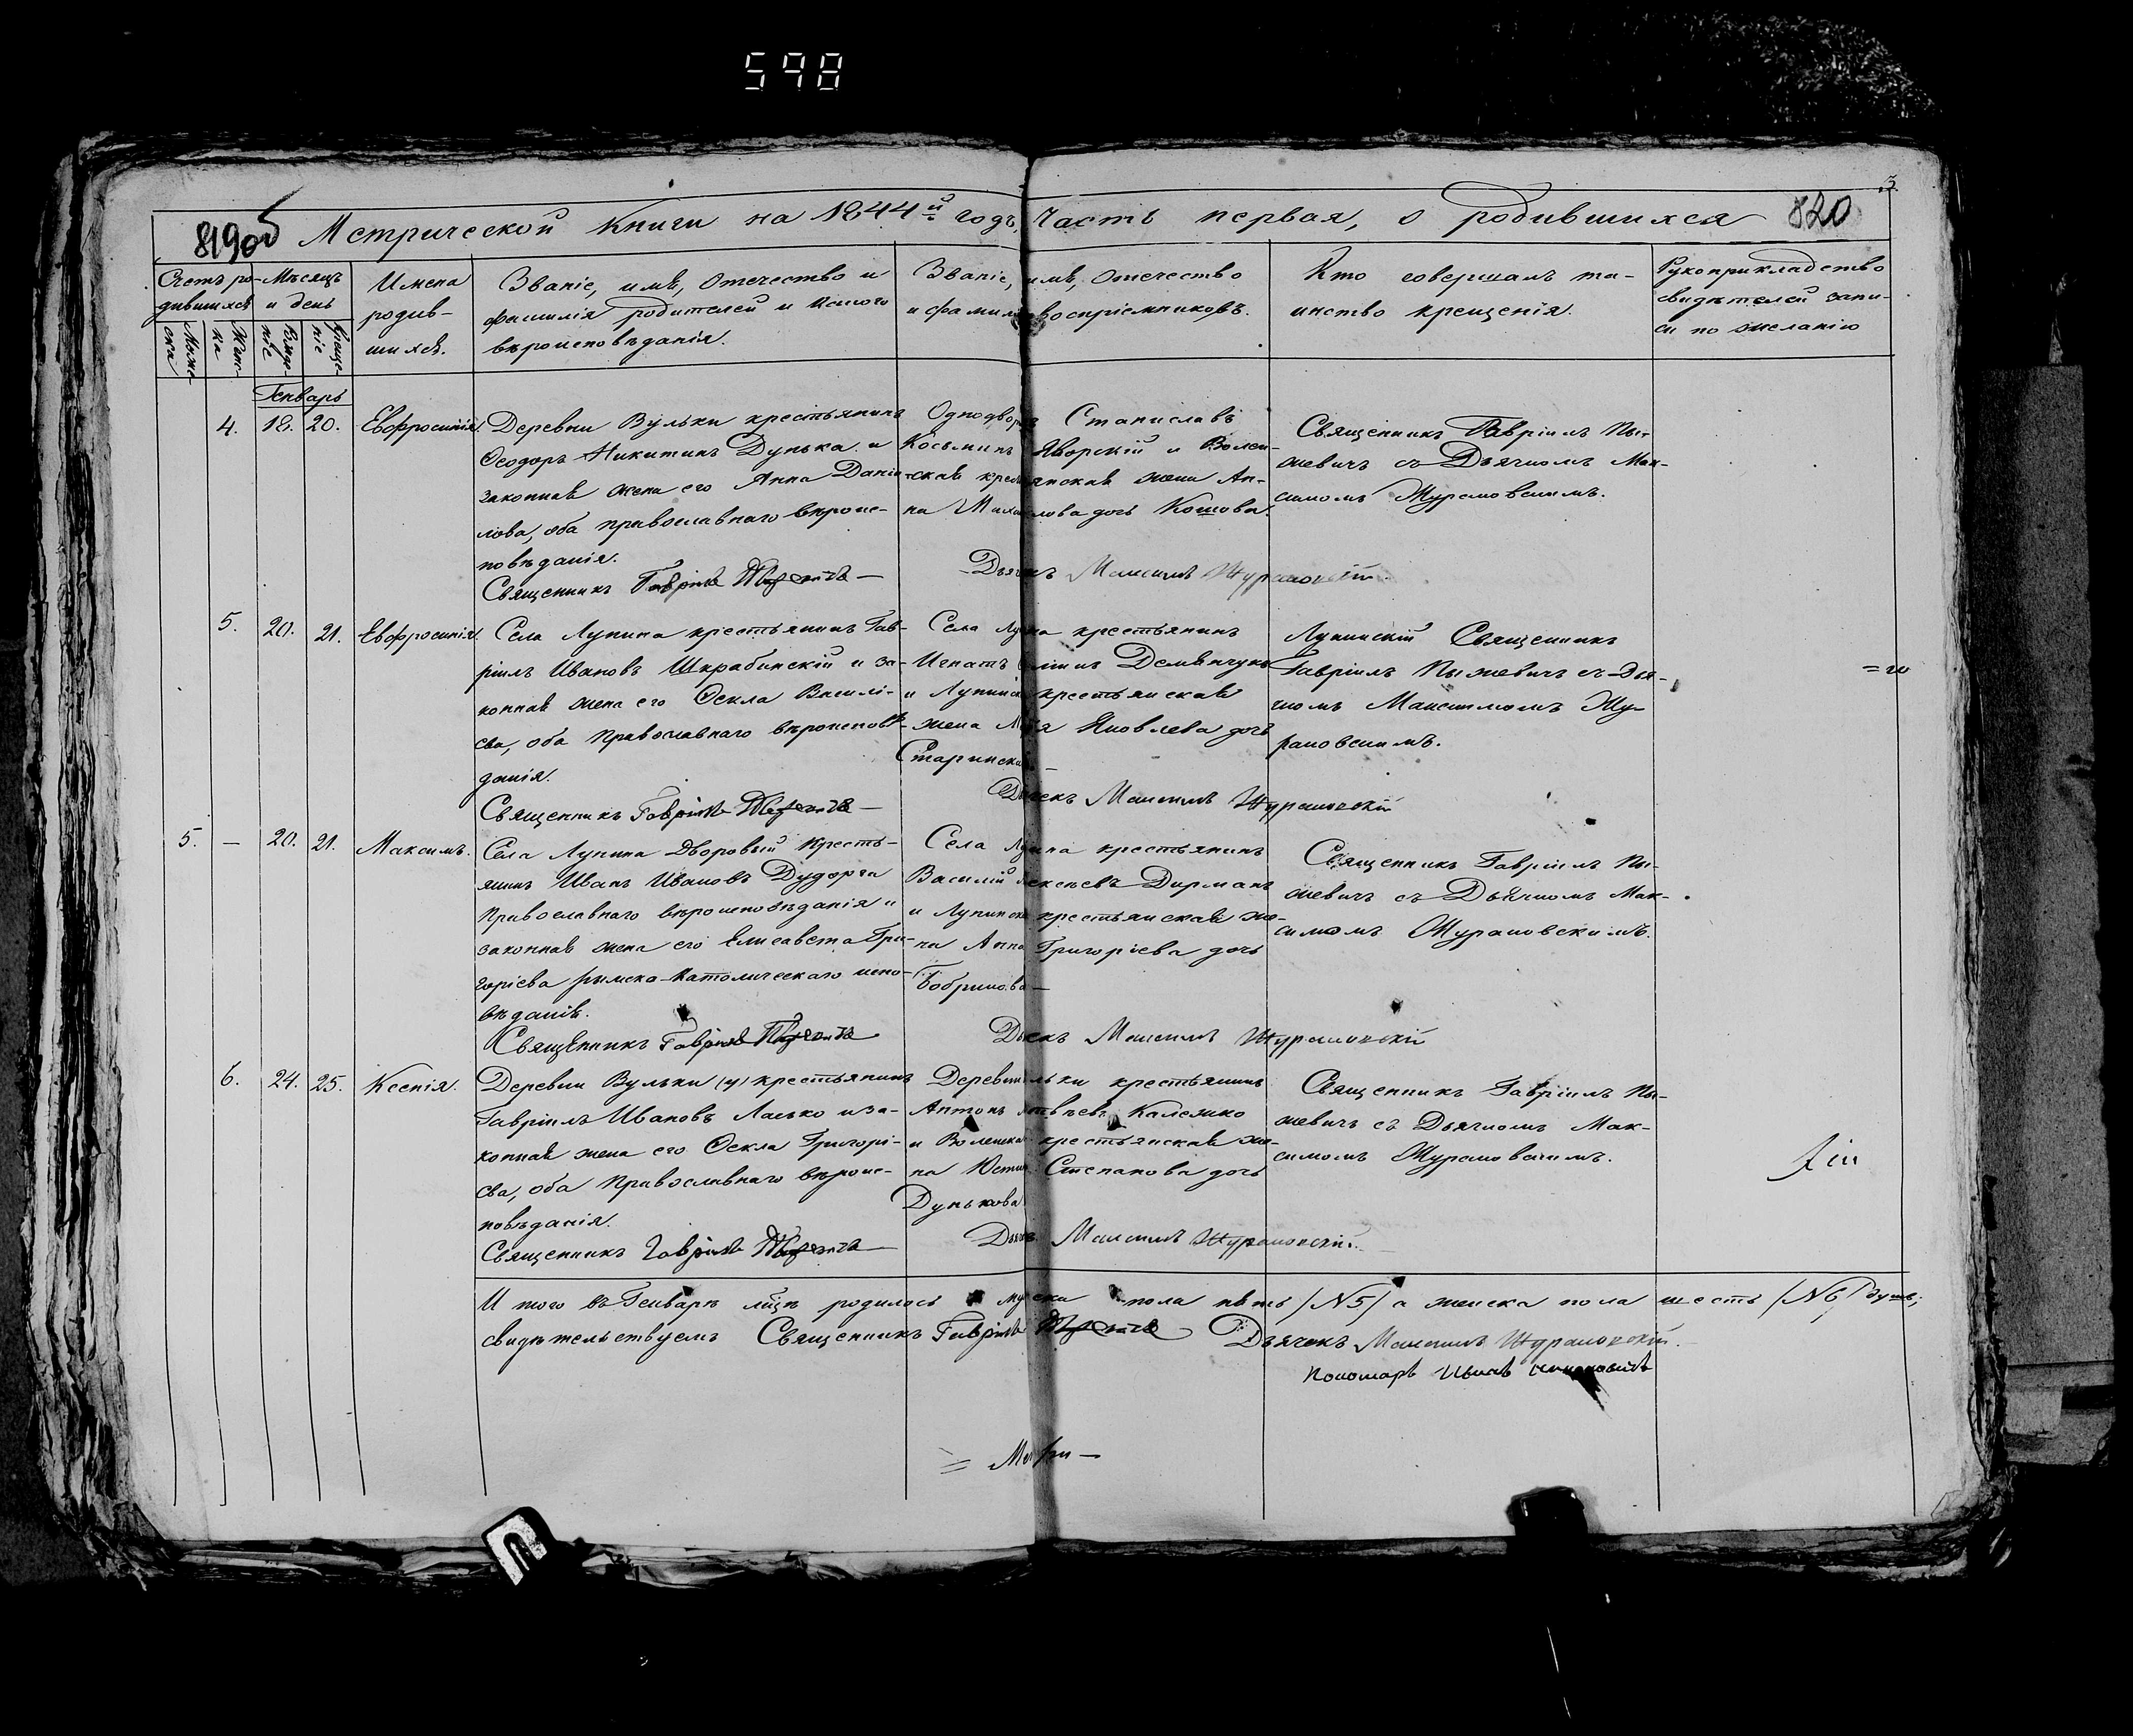 598
3.
819об Метрической Книги на 1844й годъ, Часть первая, о родившихся 820
Счетъ родившихся
Мѣсяцъ и день
Имена родившихся.
Званіе, имя, Отечество и
фамилія родителей и какого
вѣроисповѣданія.
Званіе, имя, Отечество
и фамилія воспріемниковъ.
Кто совершалъ та-
инство крещенія.
Рукоприкладство
свидѣтелей запи-
си по желанію
Муже-
ска
Жен-
ска
Рожде-
ніе
Креще-
ніе
Генварь
4. 18. 20. Евфросинія.
Деревни Вульки крестьянинъ
Ѳеодоръ Никитинъ Дунька и
законная жена его Анна Дани-
лова, оба православнаго вѣроис-
повѣданія.
Священникъ Гавріилъ
Однодворецъ Станиславъ
Косьминъ Яворскій и Волен-
ская крестьянская жена Ан-
на Михайлова дочь Кошова.
Дьячекъ Максимъ Журановскій.
Священникъ Гавріилъ Пы-
жевичъ съ Дьячкомъ Мак-
симомъ Журановскимъ.
5. 20. 21. Евфросинія.
Села Лунина крестьянинъ Гав-
ріилъ Ивановъ Шкрабинскій и за-
конная жена его Ѳекла Василі-
ева, оба Православнаго вѣроисповѣ-
данія.
Священникъ Гавріилъ
Села Лунина крестьянинъ
Игнатъ Демьянчукъ
и Лунинская крестьянская
жена Яковлева дочь
Старинская
Дьячекъ Максимъ Журановскій
Лунинскій Священникъ
Гавріилъ Пыжевичъ съ Дья-
чкомъ Максимомъ Жу-
рановскимъ.
5. — 20. 21. Максимъ.
Села Лунина Дворовый Кресть-
янинъ Иванъ Ивановъ Дударга
Православнаго вѣроисповѣданія и
законная жена его Елисавета Гри-
горіева римско-Католическаго испо-
вѣданія.
Священникъ Гавріилъ
Села Лунина крестьянинъ
Василій Алексѣевъ Дирманъ
и Лунинская крестьянская же-
на Анна Григоріева дочь
Бобрикова
Дьячекъ Максимъ Журановскій
Священникъ Гавріилъ Пы-
жевичъ съ Дьячкомъ Мак-
симомъ Журановскимъ.
6. 24. 25. Ксенія.
Деревни Вульки (у) крестьянинъ
Гавріилъ Ивановъ Ласько и за-
конная жена его Ѳекла Григорі-
ева, оба Православнаго вѣроис-
повѣданія.
Священникъ Гавріилъ
Деревни Вульки крестьянинъ
Антонъ Матвѣевъ
и Воленская крестьянская же-
на Степанова дочь
Дунькова
Дьячекъ Максимъ Журановскій.
Священникъ Гавріилъ Пы-
жевичъ съ Дьячкомъ Мак-
симомъ Журановскимъ.
И того въ Генварѣ мѣсяцѣ родилось мужска пола пять (N5) а женска пола шесть (N6) душъ;
свидѣтельствуемъ Священникъ Гавріилъ Дьячекъ Максимъ Журановскій.
Пономарь Иванъ